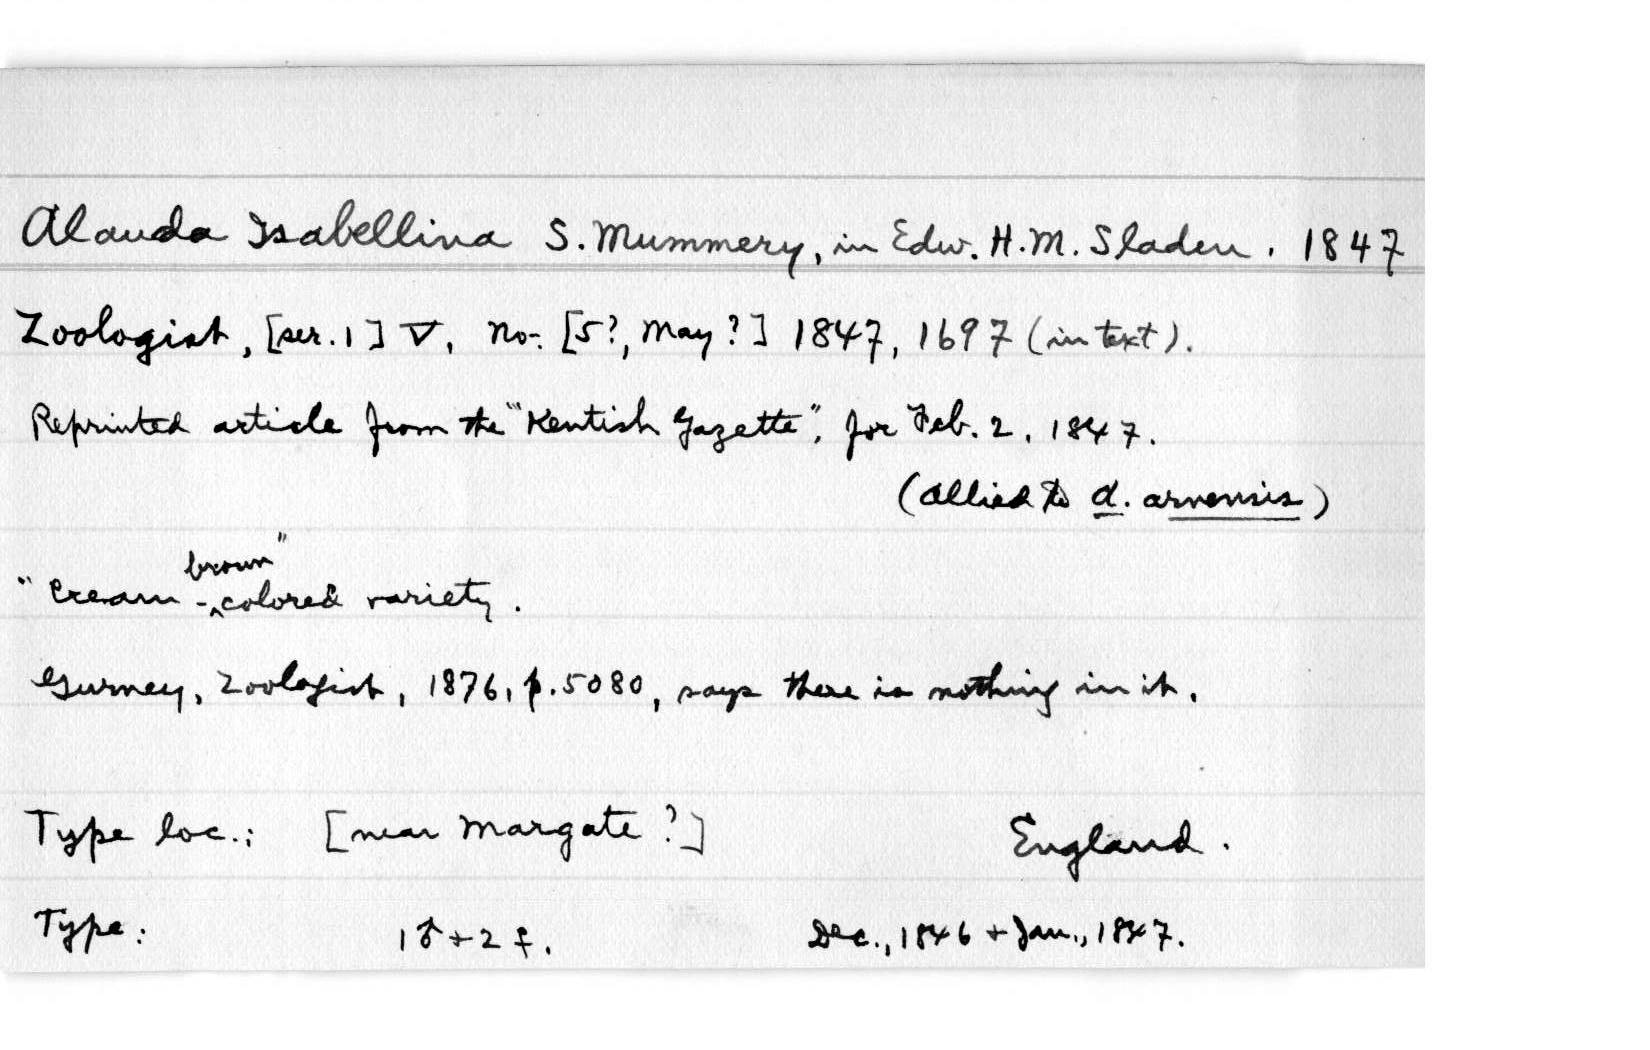 Alauda Isabellina S. Mummery, in Edw. H. M. Sladen. 1847
Zoologist, [ser. 1] V, No. [5?, May?] 1847, 1697 (in text).
Reprinted article from the "Kentish Gazette", for Feb. 2, 1847.
(Allied to A. arvensis)
brown"
"Cream-colored variety.
Gurney, Zoologist, 1876, p. 5080, says there is nothing in it.
Type loc.: [near Margate?] England.
Type: 1♂+2♀. Dec., 1846 + Jan., 1847.